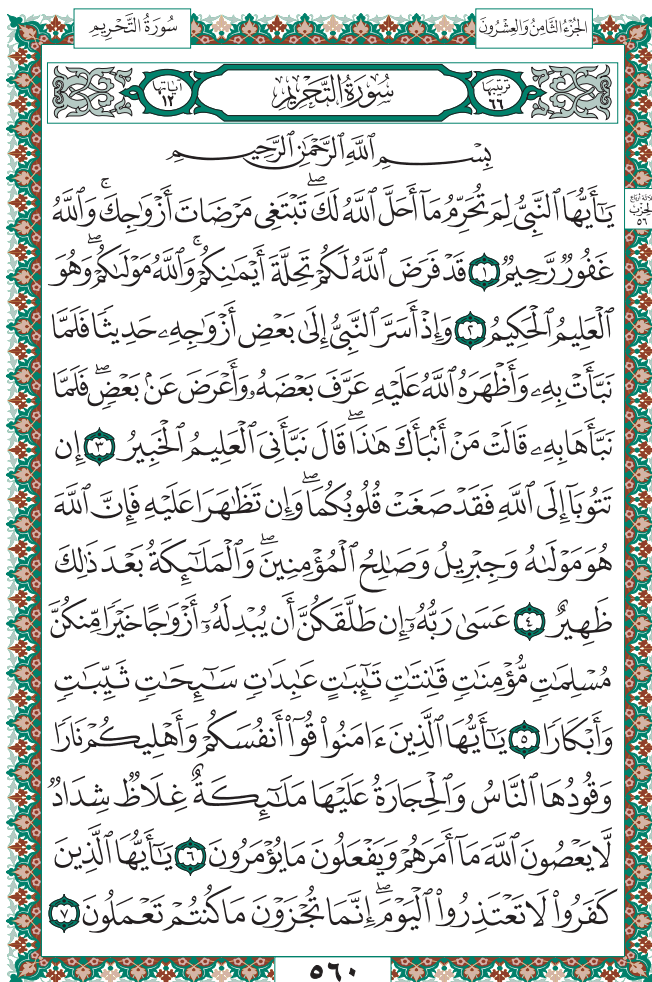 الجُزْءُ الثَّامِنُ وَالعِشْرُونَ
سُورَةُ التَّحْرِيمِ
ترتيبها ٦٦
سُورَةُ التَّحْرِيمِ
آياتها ١٢
بِسْمِ ٱللَّهِ ٱلرَّحْمَٰنِ ٱلرَّحِيمِ
يَٰٓأَيُّهَا ٱلنَّبِىُّ لِمَ تُحَرِّمُ مَآ أَحَلَّ ٱللَّهُ لَكَ ۖ تَبْتَغِى مَرْضَاتَ أَزْوَٰجِكَ ۚ وَٱللَّهُ
غَفُورٌ رَّحِيمٌ ١ قَدْ فَرَضَ ٱللَّهُ لَكُمْ تَحِلَّةَ أَيْمَٰنِكُمْ ۚ وَٱللَّهُ مَوْلَىٰكُمْ ۖ وَهُوَ
ٱلْعَلِيمُ ٱلْحَكِيمُ ٢ وَإِذْ أَسَرَّ ٱلنَّبِىُّ إِلَىٰ بَعْضِ أَزْوَٰجِهِۦ حَدِيثًا فَلَمَّا
نَبَّأَتْ بِهِۦ وَأَظْهَرَهُ ٱللَّهُ عَلَيْهِ عَرَّفَ بَعْضَهُۥ وَأَعْرَضَ عَنۢ بَعْضٍ ۖ فَلَمَّا
نَبَّأَهَا بِهِۦ قَالَتْ مَنْ أَنۢبَأَكَ هَٰذَا ۖ قَالَ نَبَّأَنِىَ ٱلْعَلِيمُ ٱلْخَبِيرُ ٣ إِن
تَتُوبَآ إِلَى ٱللَّهِ فَقَدْ صَغَتْ قُلُوبُكُمَا ۖ وَإِن تَظَٰهَرَا عَلَيْهِ فَإِنَّ ٱللَّهَ
هُوَ مَوْلَىٰهُ وَجِبْرِيلُ وَصَٰلِحُ ٱلْمُؤْمِنِينَ ۖ وَٱلْمَلَٰٓئِكَةُ بَعْدَ ذَٰلِكَ
ظَهِيرٌ ٤ عَسَىٰ رَبُّهُۥٓ إِن طَلَّقَكُنَّ أَن يُبْدِلَهُۥٓ أَزْوَٰجًا خَيْرًا مِّنكُنَّ
مُسْلِمَٰتٍ مُّؤْمِنَٰتٍ قَٰنِتَٰتٍ تَٰٓئِبَٰتٍ عَٰبِدَٰتٍ سَٰٓئِحَٰتٍ ثَيِّبَٰتٍ
وَأَبْكَارًا ٥ يَٰٓأَيُّهَا ٱلَّذِينَ ءَامَنُوا۟ قُوٓا۟ أَنفُسَكُمْ وَأَهْلِيكُمْ نَارًا
وَقُودُهَا ٱلنَّاسُ وَٱلْحِجَارَةُ عَلَيْهَا مَلَٰٓئِكَةٌ غِلَاظٌ شِدَادٌ
لَّا يَعْصُونَ ٱللَّهَ مَآ أَمَرَهُمْ وَيَفْعَلُونَ مَا يُؤْمَرُونَ ٦ يَٰٓأَيُّهَا ٱلَّذِينَ
كَفَرُوا۟ لَا تَعْتَذِرُوا۟ ٱلْيَوْمَ ۖ إِنَّمَا تُجْزَوْنَ مَا كُنتُمْ تَعْمَلُونَ ٧
٥٦٠